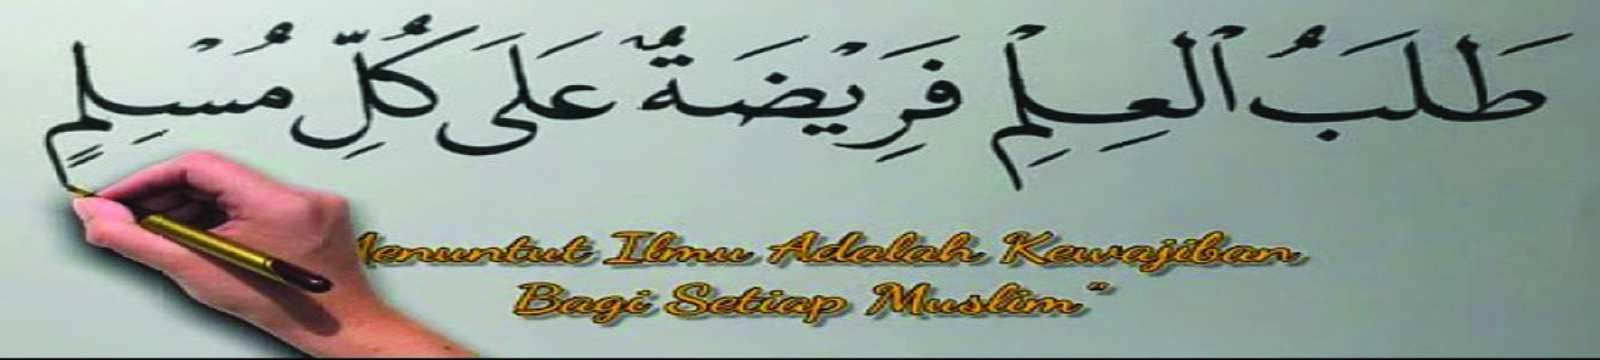 طَلَبُ الْعِلِمْ فَرِيْضَةٌ عَلَى كُلِّ مُسْلِمٍ
Menuntut Ilmu Adalah Kewajiban
Bagi Setiap Muslim"